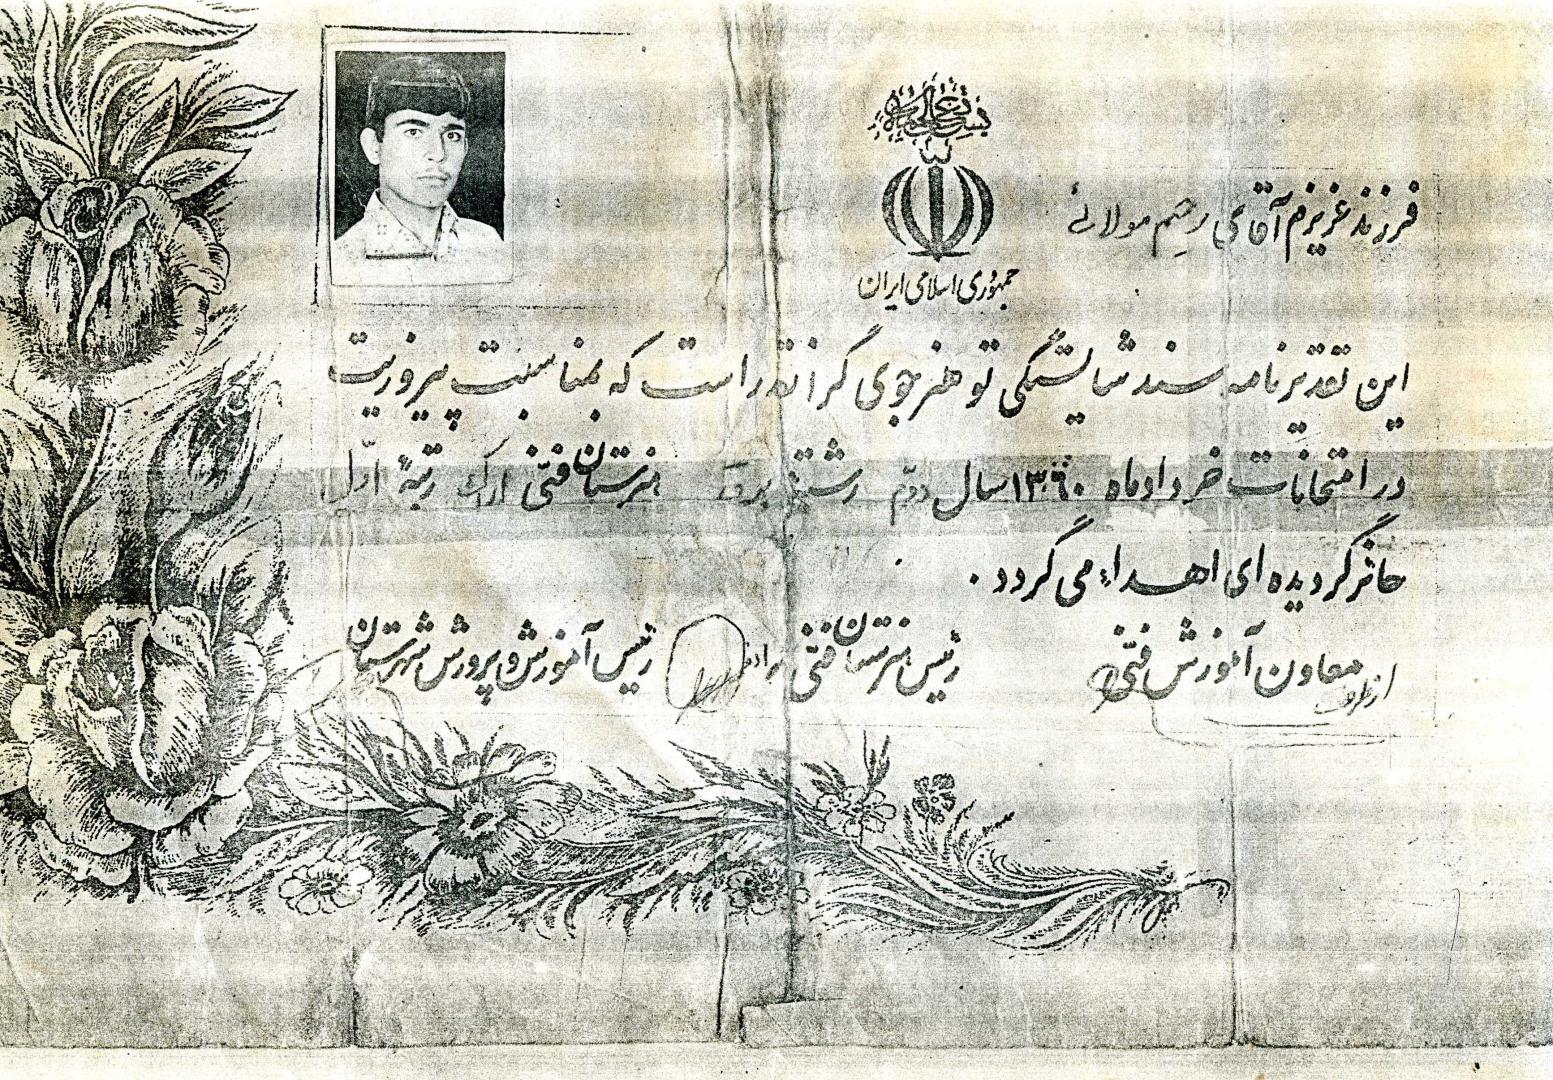 بسمه تعالی
فرزند عزیزم آقای رحیم مولائی
جمهوری اسلامی ایران
این تقدیرنامه سند شایستگی تو هنرجوی گرانقدر است که بمناسبت پیروزیت
در امتحانات خرداد ماه ۱۳۶۰ سال دوّم رشته برق هنرستان فنّی اراک رتبهٔ اوّل
حائز گردیده ای اهداء می گردد.
از طرف معاون آموزش فنّی رئیس هنرستان فنّی رئیس آموزش و پرورش شهرستان